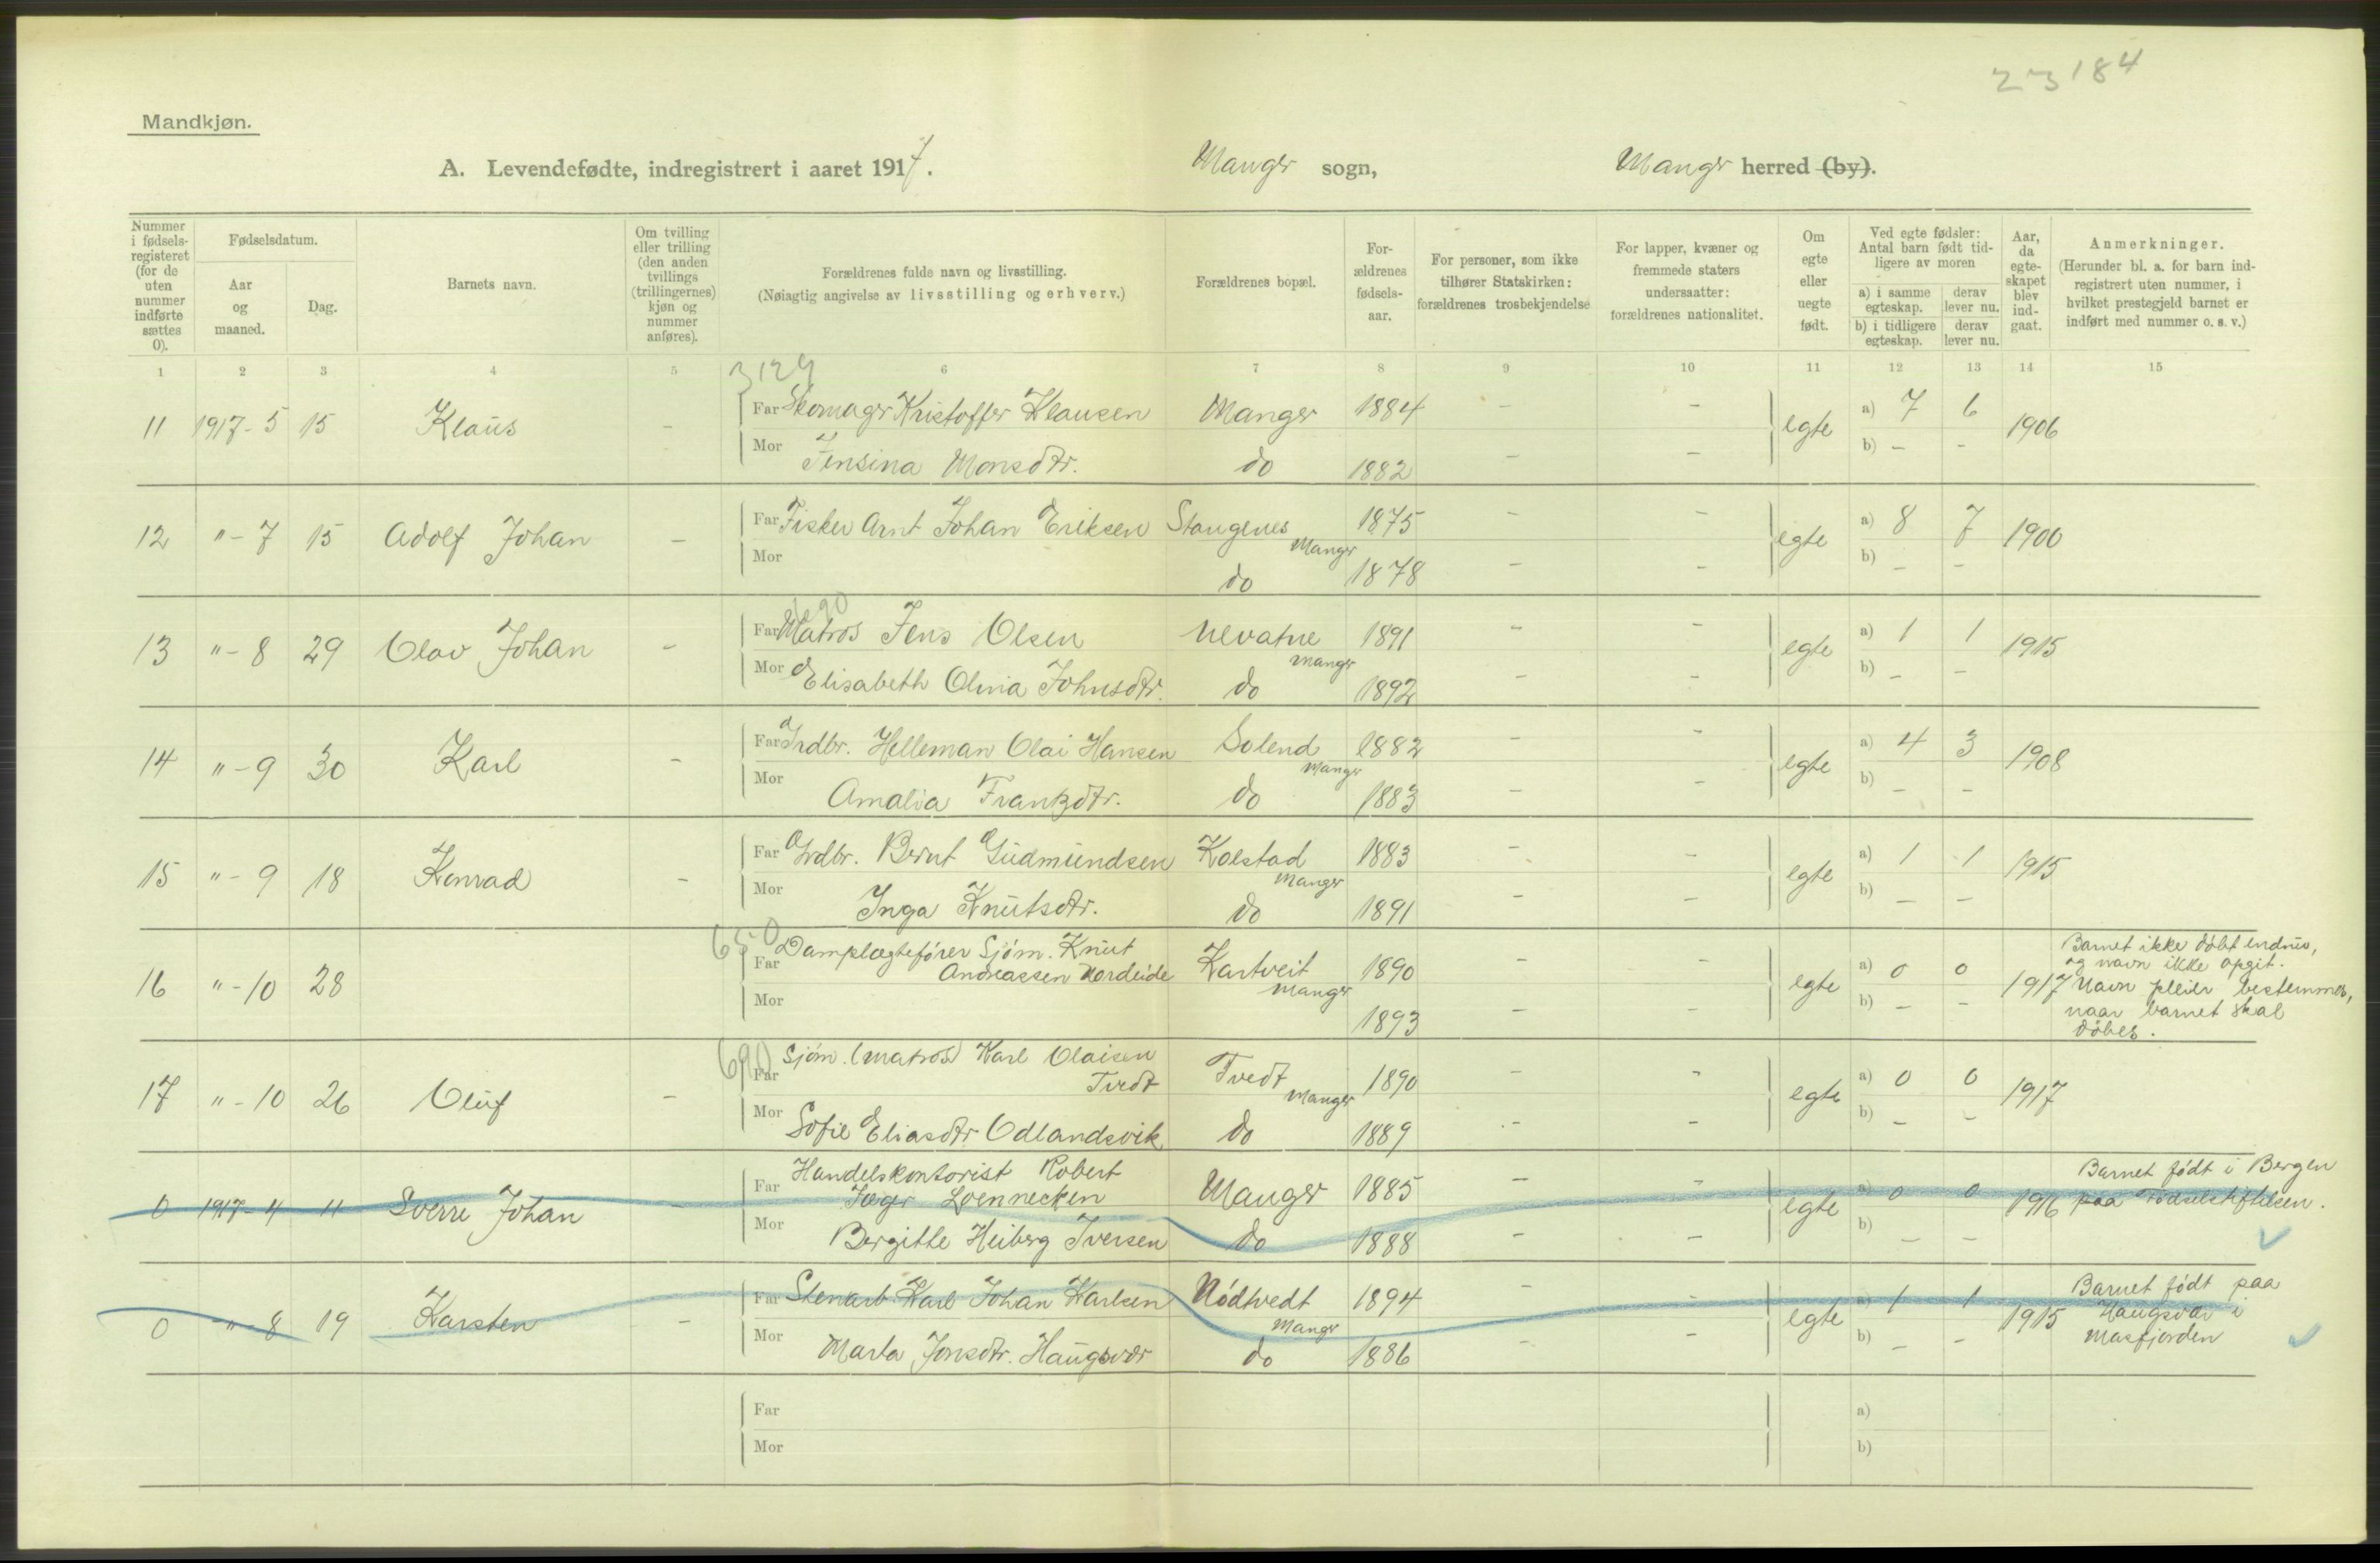 23184
Mandkjøn.
A. Levendefødte, indregistrert i aaret 1917. Manger sogn, Manger herred (by).
Nummer i fødsels-registeret (for de uten nummer indførte sættes 0).
Fødselsdatum.
Aar og maaned.
Dag.
Barnets navn.
Om tvilling eller trilling (den anden tvillings (trillingernes) kjøn og nummer anføres).
Forældrenes fulde navn og livsstilling.
(Nøiagtig angivelse av livsstilling og erhverv.)
Forældrenes bopæl.
For-ældrenes fødsels-aar.
For personer, som ikke tilhører Statskirken: forældrenes trosbekjendelse
For lapper, kvæner og fremmede staters undersaatter: forældrenes nationalitet.
Om egte eller uegte født.
Ved egte fødsler: Antal barn født tid-ligere av moren
a) i samme egteskap.
derav lever nu.
b) i tidligere egteskap.
derav lever nu.
Aar, da egte-skapet blev ind-gaat.
Anmerkninger.
(Herunder bl. a. for barn ind-registrert uten nummer, i hvilket prestegjeld barnet er indført med nummer o. s. v.)
1 2 3 4 5 6 7 8 9 10 11 12 13 14 15
3129
11 1917-5 15 Klaus - Far Skomager Kristoffer Klausen Manger 1884 - - egte a) 7 6 1906
Mor Jensina Monsdtr. do 1882 - - b) - -
12 "-7 15 Adolf Johan - Far Fisker Arnt Johan Eriksen Stangenes Manger 1875 - - egte a) 8 7 1900
Mor do 1878 - - b) - -
13 "-8 29 Olav Johan - Far Matros Jens Olsen Nevatne Manger 1891 - - egte a) 1 1 1915
Mor Elisabeth Olivia Johnsdtr. do 1892 - - b) - -
14 "-9 30 Karl - Far Grdbr. Helleman Olai Hansen Solend Manger 1882 - - egte a) 4 3 1908
Mor Amalia Frantzdtr. do 1883 - - b) - -
15 "-9 18 Konrad - Far Grdbr. Bernt Gudmundsen Kolstad Manger 1883 - - egte a) 1 1 1915
Mor Inga Knutsdtr. do 1891 - - b) - -
650
16 "-10 28 Far Damplægtefører Sjóm. Knut Andreassen Nordeide Kartveit Manger 1890 - - egte a) 0 0 1917
Mor 1893 - - b) - -
Barnet ikke döbt endnu,
og navn ikke opgit.
Navn pleier bestemmes,
naar barnet skal
döbes.
690
17 "-10 26 Oluf - Far Sjóm. (matros) Karl Olaisen Tvedt Tvedt Manger 1890 - - egte a) 0 0 1917
Mor Sofie Eliasdtr Odlandsvik do 1889 - - b) - -
0 1917-4 11 Sverre Johan Far Handelskontorist Robert Jæger Loennecken Manger 1885 - - egte a) 0 0 1916
Mor Bergitte Heiberg Iversen do 1888 - - b) - -
Barnet födt i Bergen
paa Födselstiftelsen.
0 "-8 19 Karsten - Far Stenarb. Karl Johan Karlsen Nódtvedt Manger 1894 - - egte a) 1 1 1915
Mor Marta Jonsdtr. Haugsvær do 1886 - - b) - -
Barnet födt paa
Haugsvær i
Masfjorden
Far a)
Mor b)